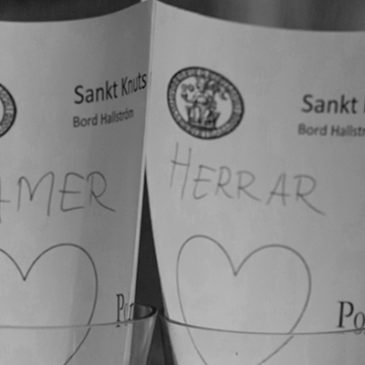 Sankt Knuts
Bord Hallström
AMER
Sankt
Bord Hallst
HERRAR